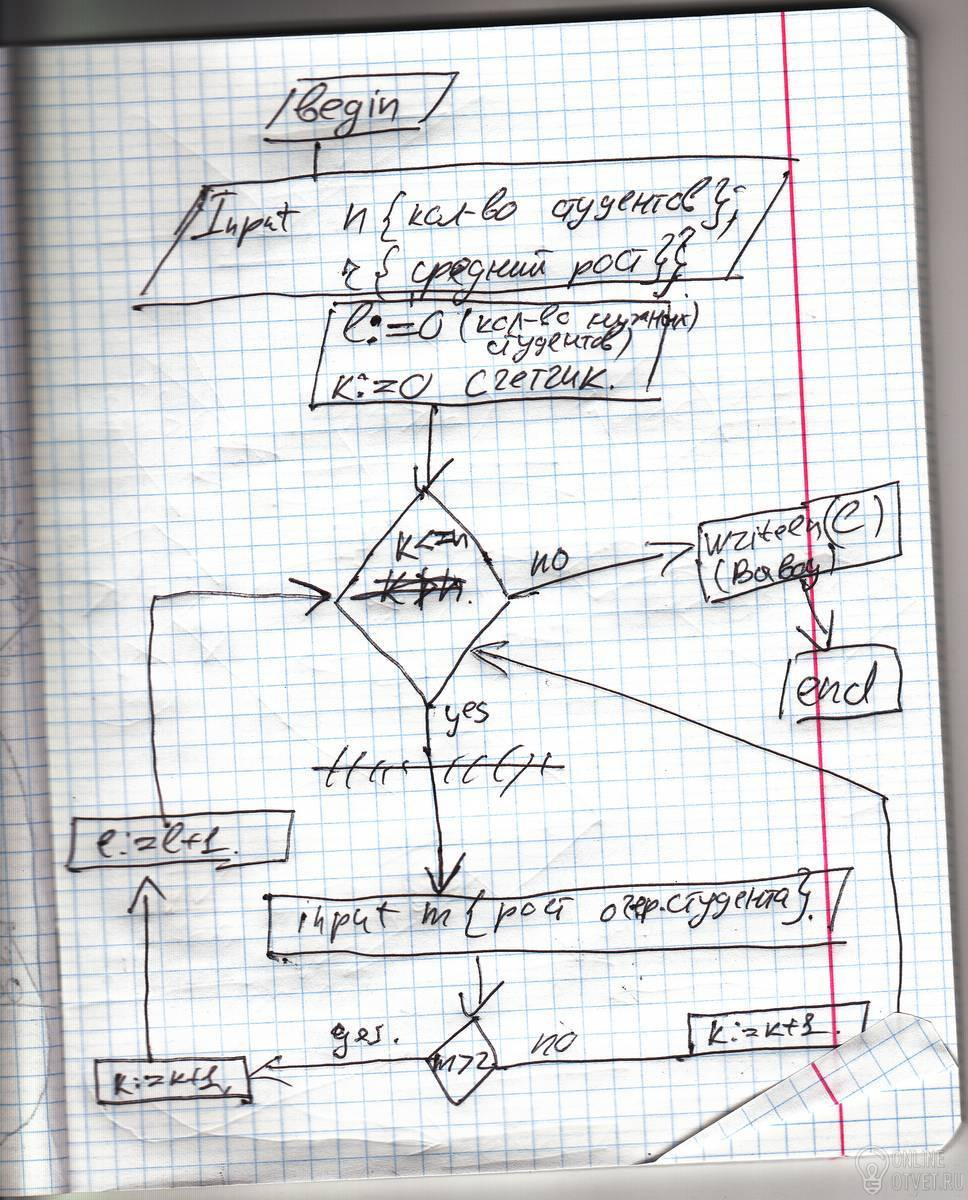 begin
Input n {кол-во студентов};
r {средний рост}
l:=0 (кол-во нужных
студентов)
k:=0 счетчик.
k<=n
k>n.
no
writeln(l)
(Вывод)
end
yes
l:=l+1.
input m {рост очер.студента}.
yes.
m>r
no
k:=k+1.
k:=k+1.
ONLINE
OTVET.RU